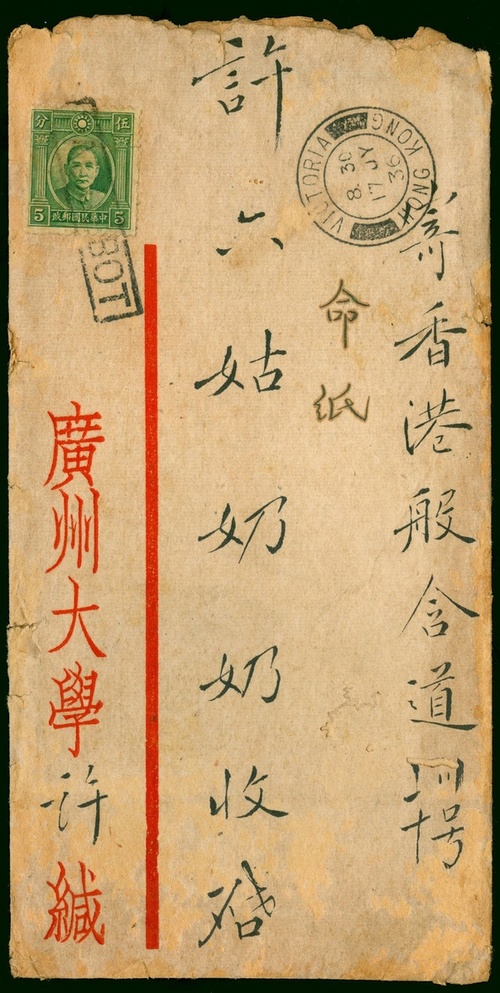 寄香港般含道十号
命紙
許六姑奶奶收啟
廣州大學許緘
伍分
5 中華民國郵政 5
BOT
VICTORIA HONG KONG
8.30
17 JY
36